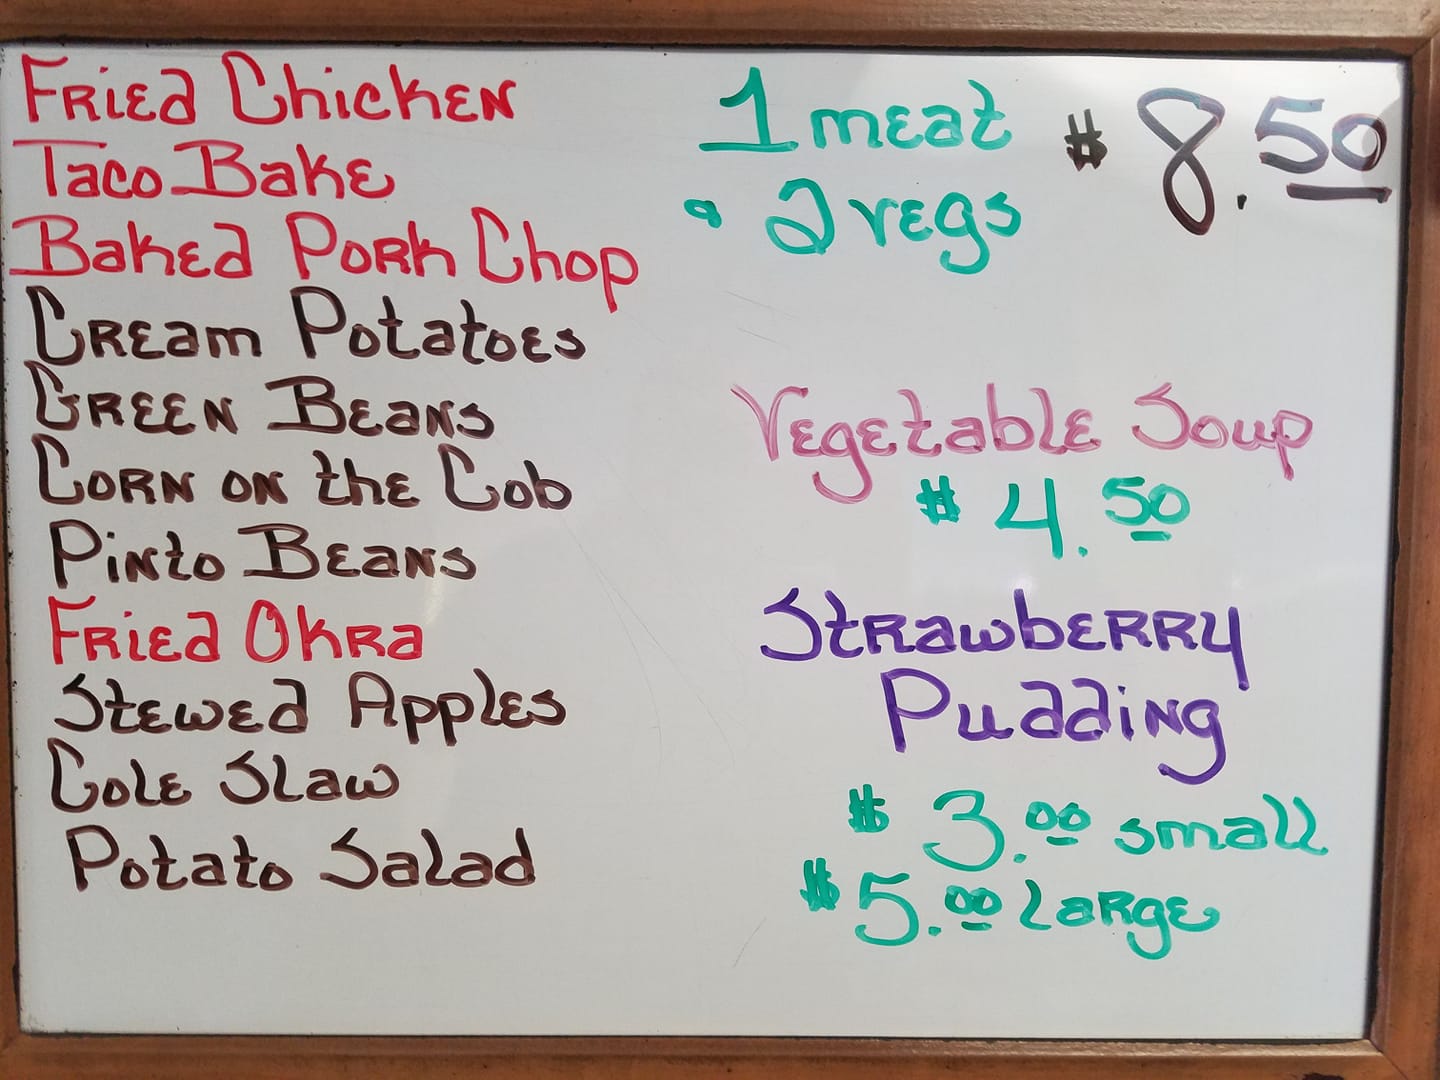 Fried Chicken
Taco Bake
Baked Pork Chop
Cream Potatoes
Green Beans
Corn on the Cob
Pinto Beans
Fried Okra
Stewed Apples
Cole Slaw
Potato Salad
1 meat $8.50
2 vegs
Vegetable Soup
$4.50
Strawberry
Pudding
$3.00 small
$5.00 Large